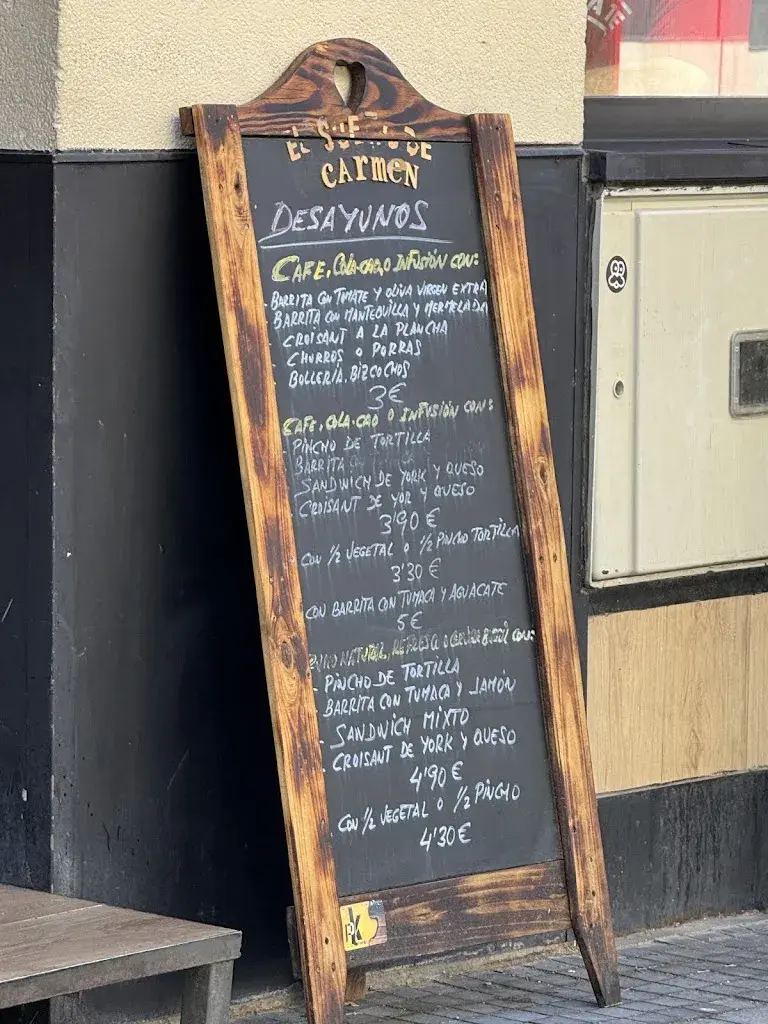 EL SUEÑO DE
CARMEN
DESAYUNOS
CAFE, COLA-CAO, O INFUSIÓN CON:
- BARRITA CON TOMATE Y OLIVA VIRGEN EXTRA
BARRITA CON MANTEQUILLA Y MERMELADA
CROISANT A LA PLANCHA
CHURROS O PORRAS
BOLLERIA. BIZCOCHOS
3€
CAFE, COLA-CAO O INFUSIÓN CON:
- PINCHO DE TORTILLA
BARRITA
SANDWICH DE YORK Y QUESO
- CROISANT DE YOR Y QUESO
3'90 €
CON 1/2 VEGETAL O 1/2 PINCHO TORTILLA
3'30 €
CON BARRITA CON TUMACA Y AGUACATE
5€
NATURAL, REFRESCO O CON:
- PINCHO DE TORTILLA
BARRITA CON TUMACA Y JAMÓN
- SANDWICH MIXTO
- CROISANT DE YORK Y QUESO
4'90 €
CON 1/2 VEGETAL O 1/2 PINCHO
4'30€